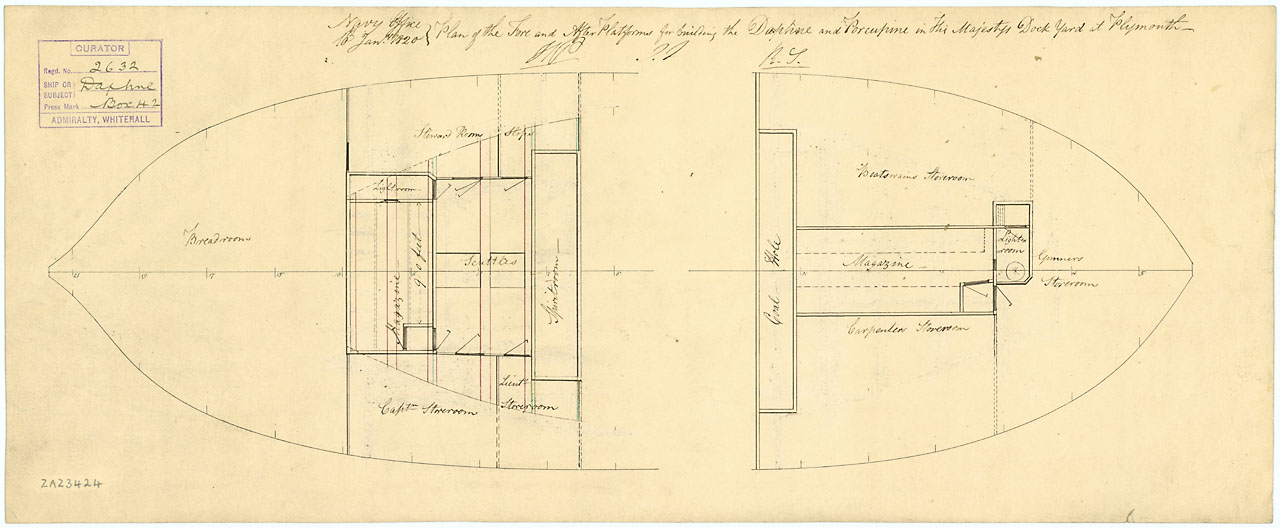 Navy Office
16 Jany 1820 } Plan of the Fore and After Platforms for building the Daphne and Porcupine in His Majestys Dock Yard at Plymouth
R. S.
CURATOR
Regd. No. 2632
SHIP OR SUBJECT: Daphne
Press Mark Box 42
ADMIRALTY, WHITEHALL
Steward Room
Slops
Lightroom
Breadroom
Magazine
9.0 feet
Scuttles
Spiritroom
Captn Storeroom
Lieuts Storeroom
Boatswains Storeroom
Coal Hole
Magazine
Light room
Gunners Storeroom
Carpenters Storeroom
ZAZ3424